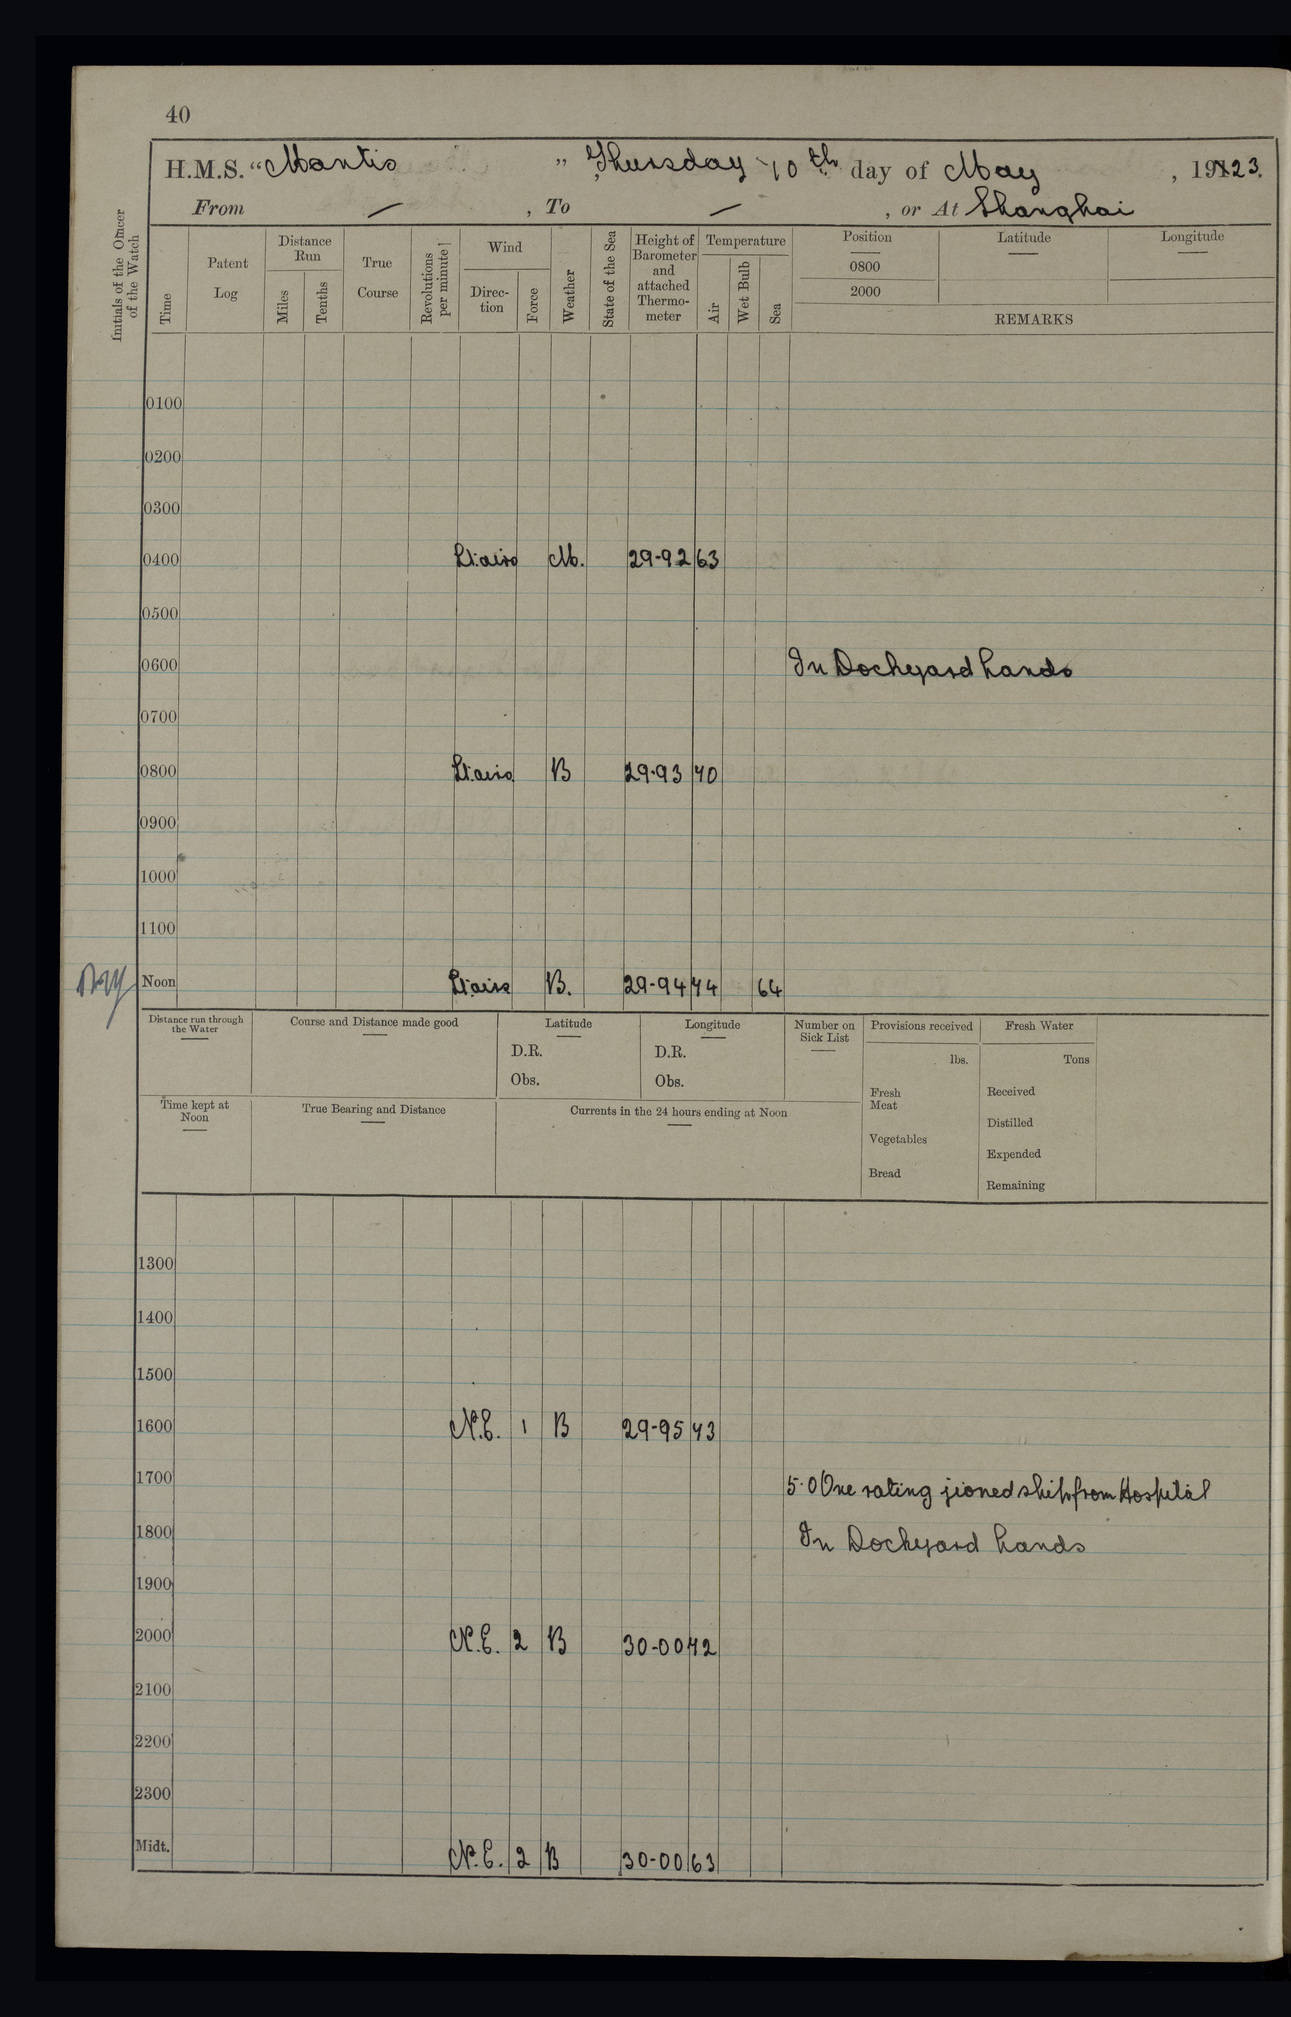 40
H.M.S. “Mantis ” Thursday 10th day of May , 1923.
From — , To — , or At Shanghai
Initials of the Officer of the Watch
Time
Patent Log
Distance Run
Miles
Tenths
True Course
Revolutions per minute
Wind
Direc-tion
Force
Weather
State of the Sea
Height of Barometer and attached Thermo-meter
Temperature
Air
Wet Bulb
Sea
Position
0800
2000
Latitude
Longitude
REMARKS
0100
0200
0300
0400 Lt: airs M. 29-92 63
0500
0600 In Dockyard hands
0700
0800 Lt: airs B 29-93 70
0900
1000
1100
Noon Lt airs B. 29-94 74 64
Distance run through the Water
Course and Distance made good
Latitude
D.R.
Obs.
Longitude
D.R.
Obs.
Number on Sick List
Provisions received
lbs.
Fresh Meat
Vegetables
Bread
Fresh Water
Tons
Received
Distilled
Expended
Remaining
Time kept at Noon
True Bearing and Distance
Currents in the 24 hours ending at Noon
1300
1400
1500
1600 N.E. 1 B 29-95 73
1700 5.0 One rating jioned ship from Hospital
1800 In Dockyard hands
1900
2000 N.E. 2 B 30-00 72
2100
2200
2300
Midt. N.E. 2 B 30-00 63